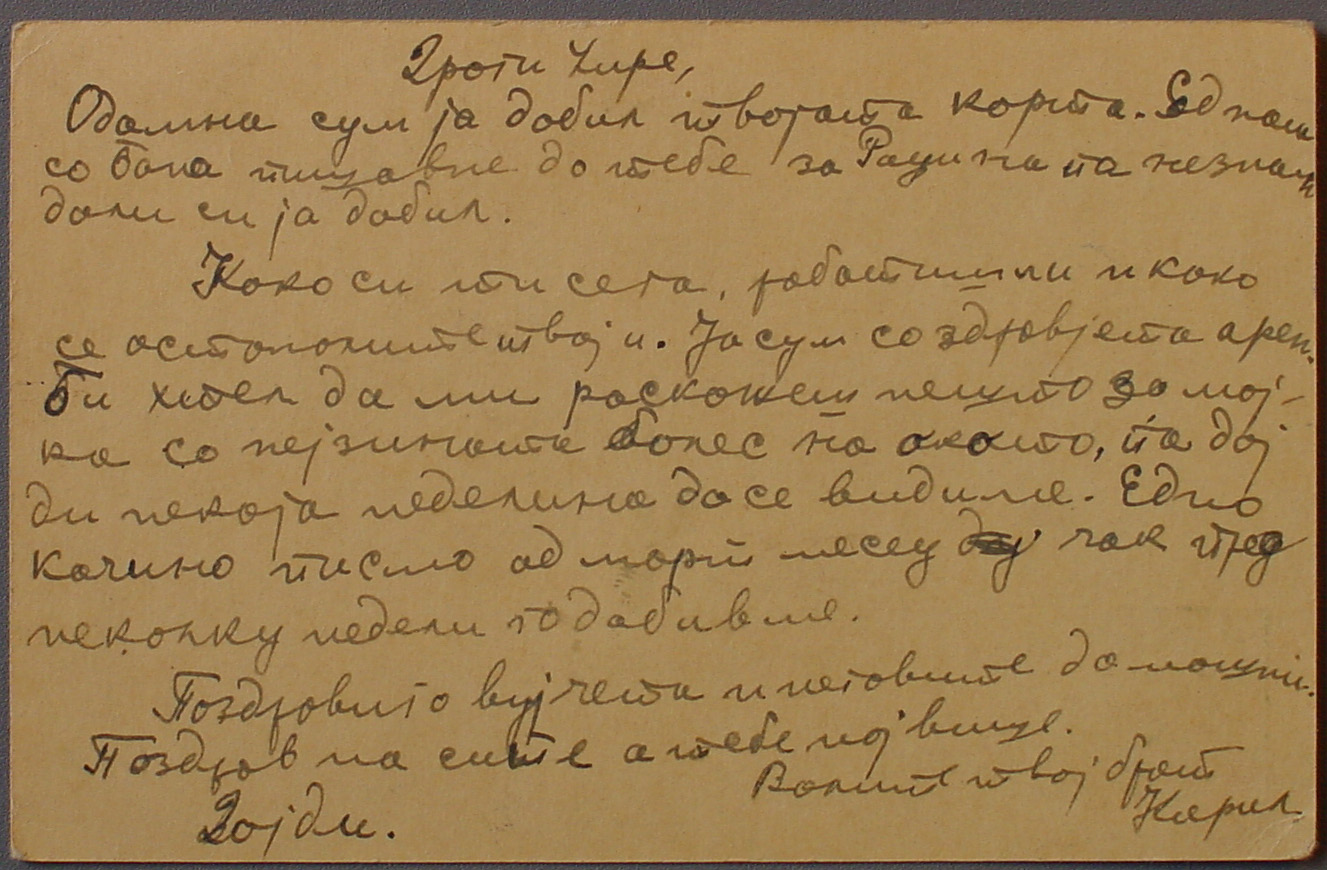 Драги Кире,
Одамна сум ја добил твојата карта. Еднаш
со Вана пишавме до тебе за Рацина па незнам
дали си ја добил.
Како си ти сега, работиш ли и како
се останалите твоји. Ја сум со здравјето арен.
Би хтел да ми раскажеш нешто за мај-
ка со нејзината болес на окото, па дој
ди некоја неделина да се видиме. Едно
Качино писмо од март месец чак пред
неколку недели го добивме.
Поздрави го вујчета и неговите домашни.
Поздрав на сите а тебе највише.
Волит твој брат
Кирил.
Дојди.